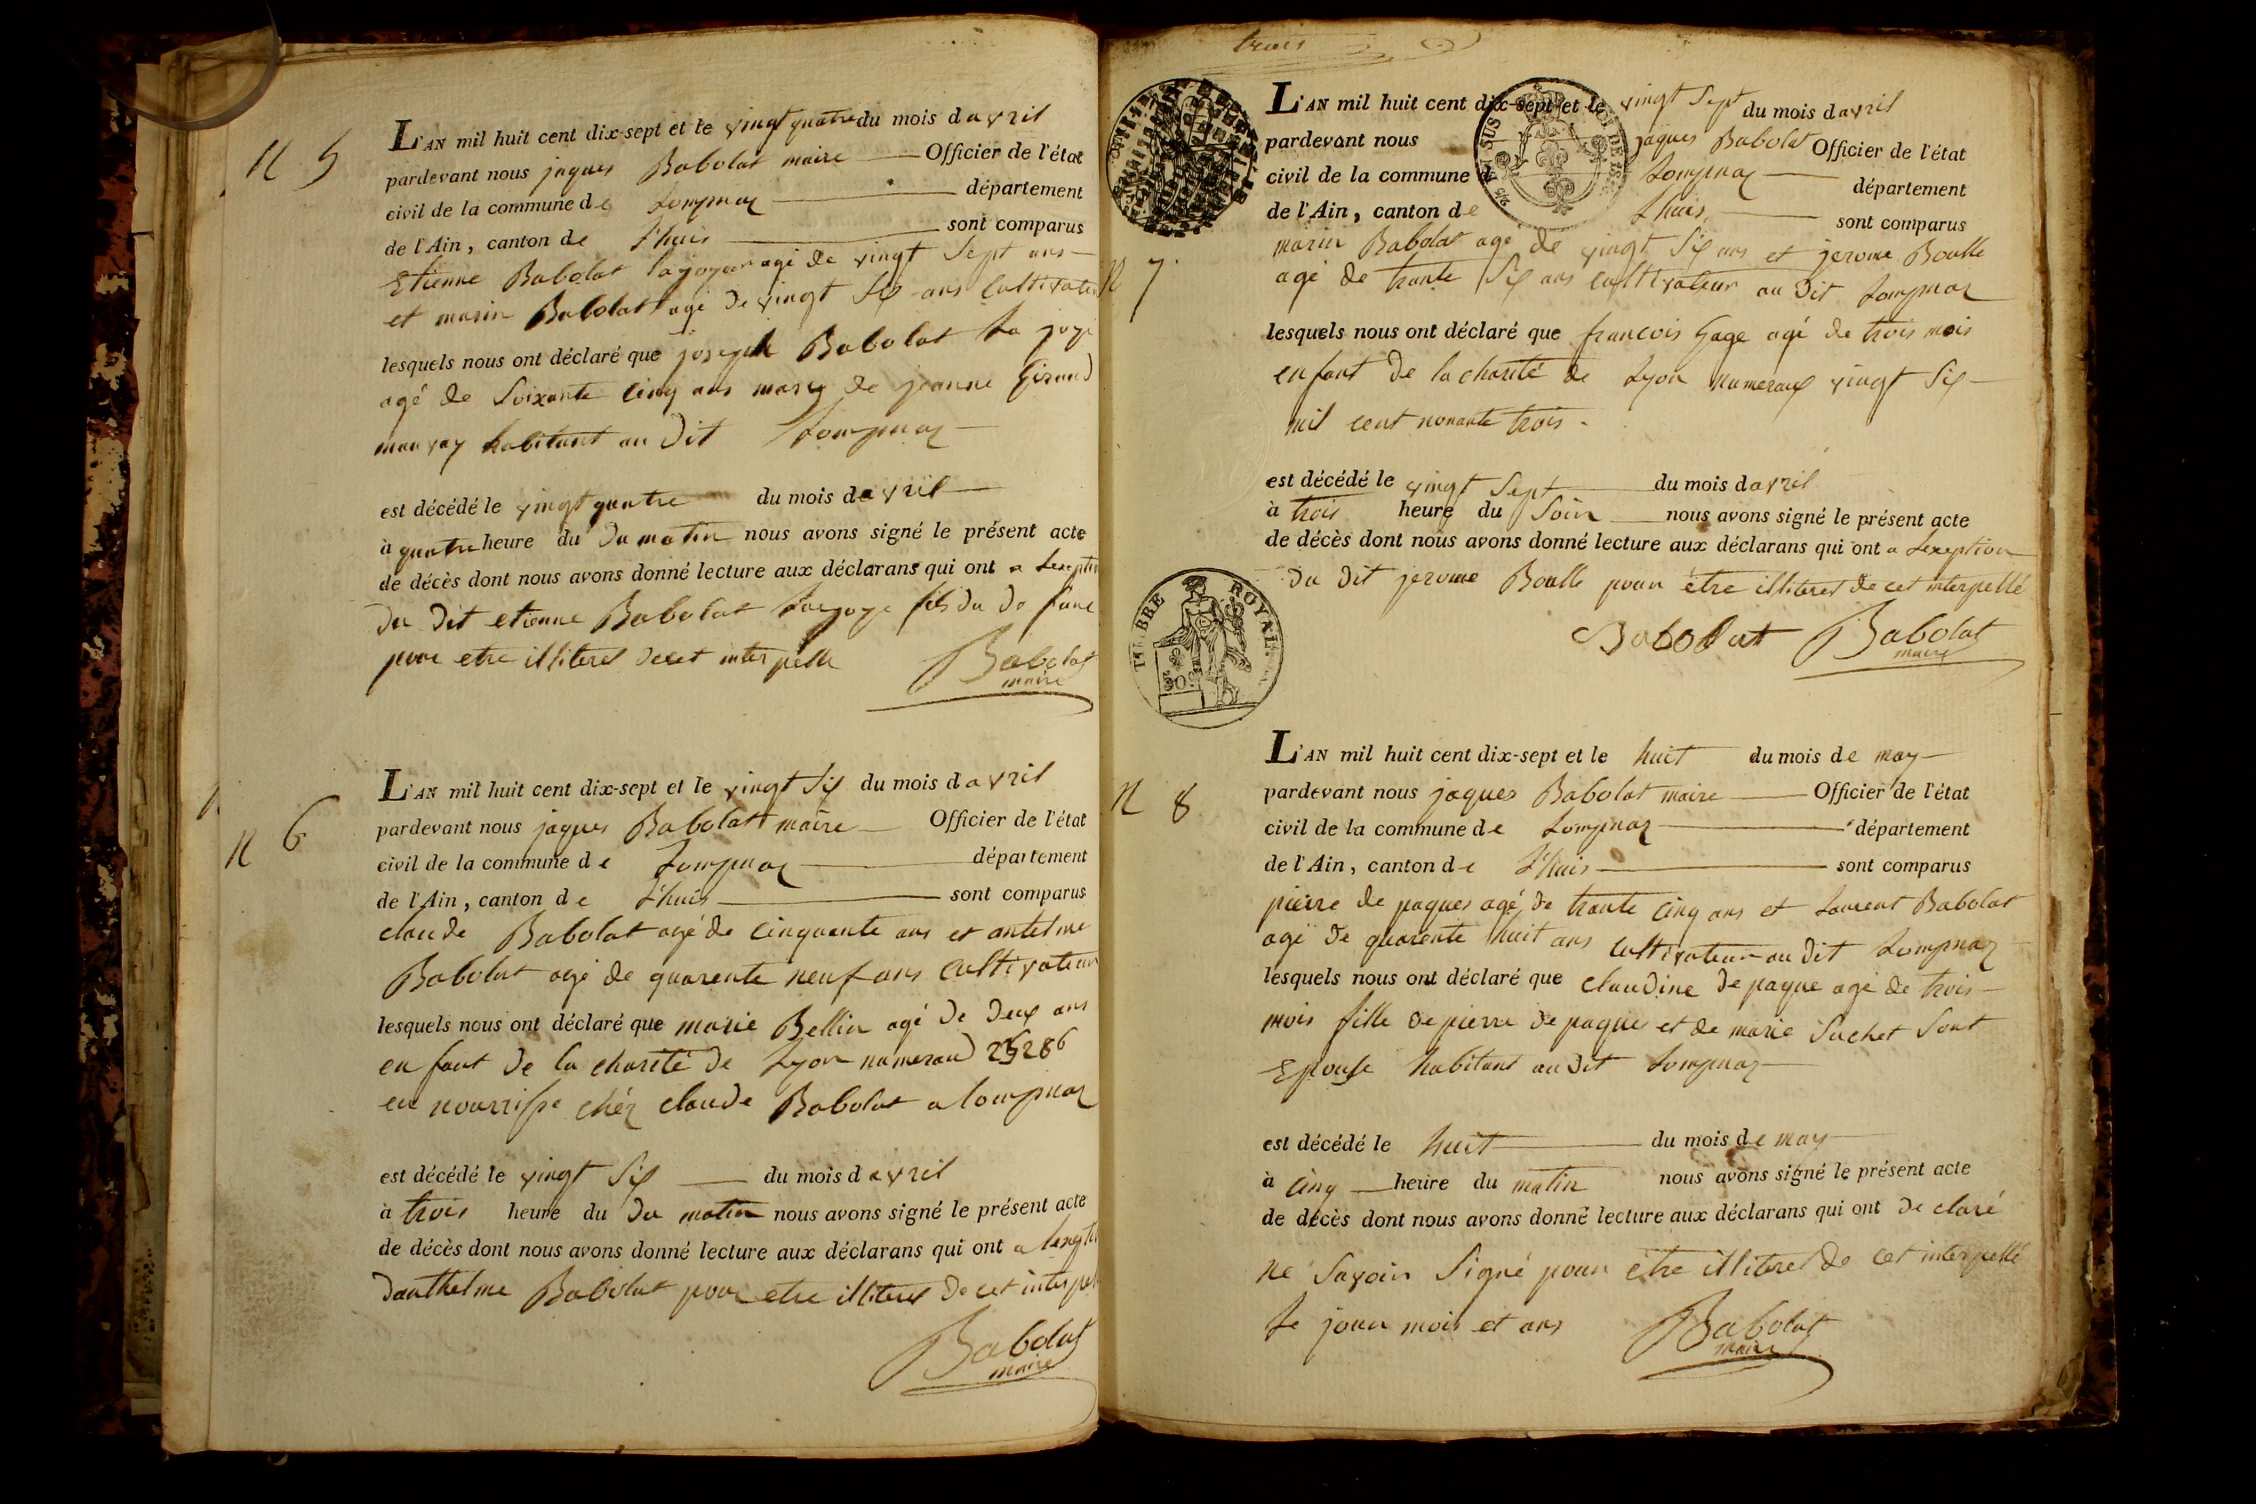 N 5
L'AN mil huit cent dix-sept et le vingt quatre du mois davril
pardevant nous jaques Babolat maire Officier de l'état
civil de la commune de Lompnaz département
de l'Ain, canton de L'huis sont comparus
Etienne Babolat agé de vingt Sept ans
et marin Babolat agé de vingt Six ans Cultivateu
lesquels nous ont déclaré que joseph Babolat La joye
agé de Soixante Cinq ans mary de jeanne Giraud
habitant au Dit Lompnaz
est décédé le vingt quatre du mois davril
à quatre heure du Du matin nous avons signé le présent acte
de décès dont nous avons donné lecture aux déclarans qui ont a Lexeptio
Du Dit etienne Babolat fils du
pour etre illiteret De cet interpelle
Babolat
maire
N 6
L'AN mil huit cent dix-sept et le vingt Six du mois davril
pardevant nous jaques Babolat maire Officier de l'état
civil de la commune de Lompnaz département
de l'Ain, canton de L'huis sont comparus
claude Babolat agé de Cinquante ans et antelme
Babolat agé de quarente neuf ans Cultivateur
lesquels nous ont déclaré que marie Bellin agé De Deux ans
enfant De la charité De Lyon
en nourrisse chéz claude Babolat a lompnaz
est décédé le vingt Six du mois davril
à trois heure du Du matin nous avons signé le présent acte
de décès dont nous avons donné lecture aux déclarans qui ont a
Danthelme Babolat pour etre illiteret De cet interpel
Babolat
maire
trois
N 7
L'AN mil huit cent dix-sept et le vingt Sept du mois davril
pardevant nous jaques Babolat Officier de l'état
civil de la commune de Lompnaz département
de l'Ain, canton de L'huis sont comparus
marin Babolat agé de vingt Six ans et jerome Boulle
agé de trante Six ans cultivateur au Dit Lompnaz
lesquels nous ont déclaré que francois Gage agé de trois mois
enfant De la charité de Lyon numeraux vingt Six
mil cent nonante trois.
est décédé le vingt Sept du mois davril
à trois heure du Soir nous avons signé le présent acte
de décès dont nous avons donné lecture aux déclarans qui ont a Lexeption
Du Dit jerome Boulle pour être illiteret de cet interpellé
TIMBRE ROYAL
Babolat Babolat
maire
N 8
L'AN mil huit cent dix-sept et le huit du mois de may
pardevant nous jaques Babolat maire Officier de l'état
civil de la commune de Lompnaz département
de l'Ain, canton de L'huis sont comparus
pierre de paques agé de trante Cinq ans et Laurent Babolat
agé De quarente huit ans Cultivateur au dit Lompnaz
lesquels nous ont déclaré que claudine De paque agé de trois
mois fille De pierre De paques et de marie Suchet Sont
Epouse habitant au Dit Lompnaz
est décédé le huit du mois de may
à Cinq heure du matin nous avons signé le présent acte
de décès dont nous avons donné lecture aux déclarans qui ont De claré
ne Savoir Signé pour être illiteret de cet interpellé
Le jour mois et ans
Babolat
maire